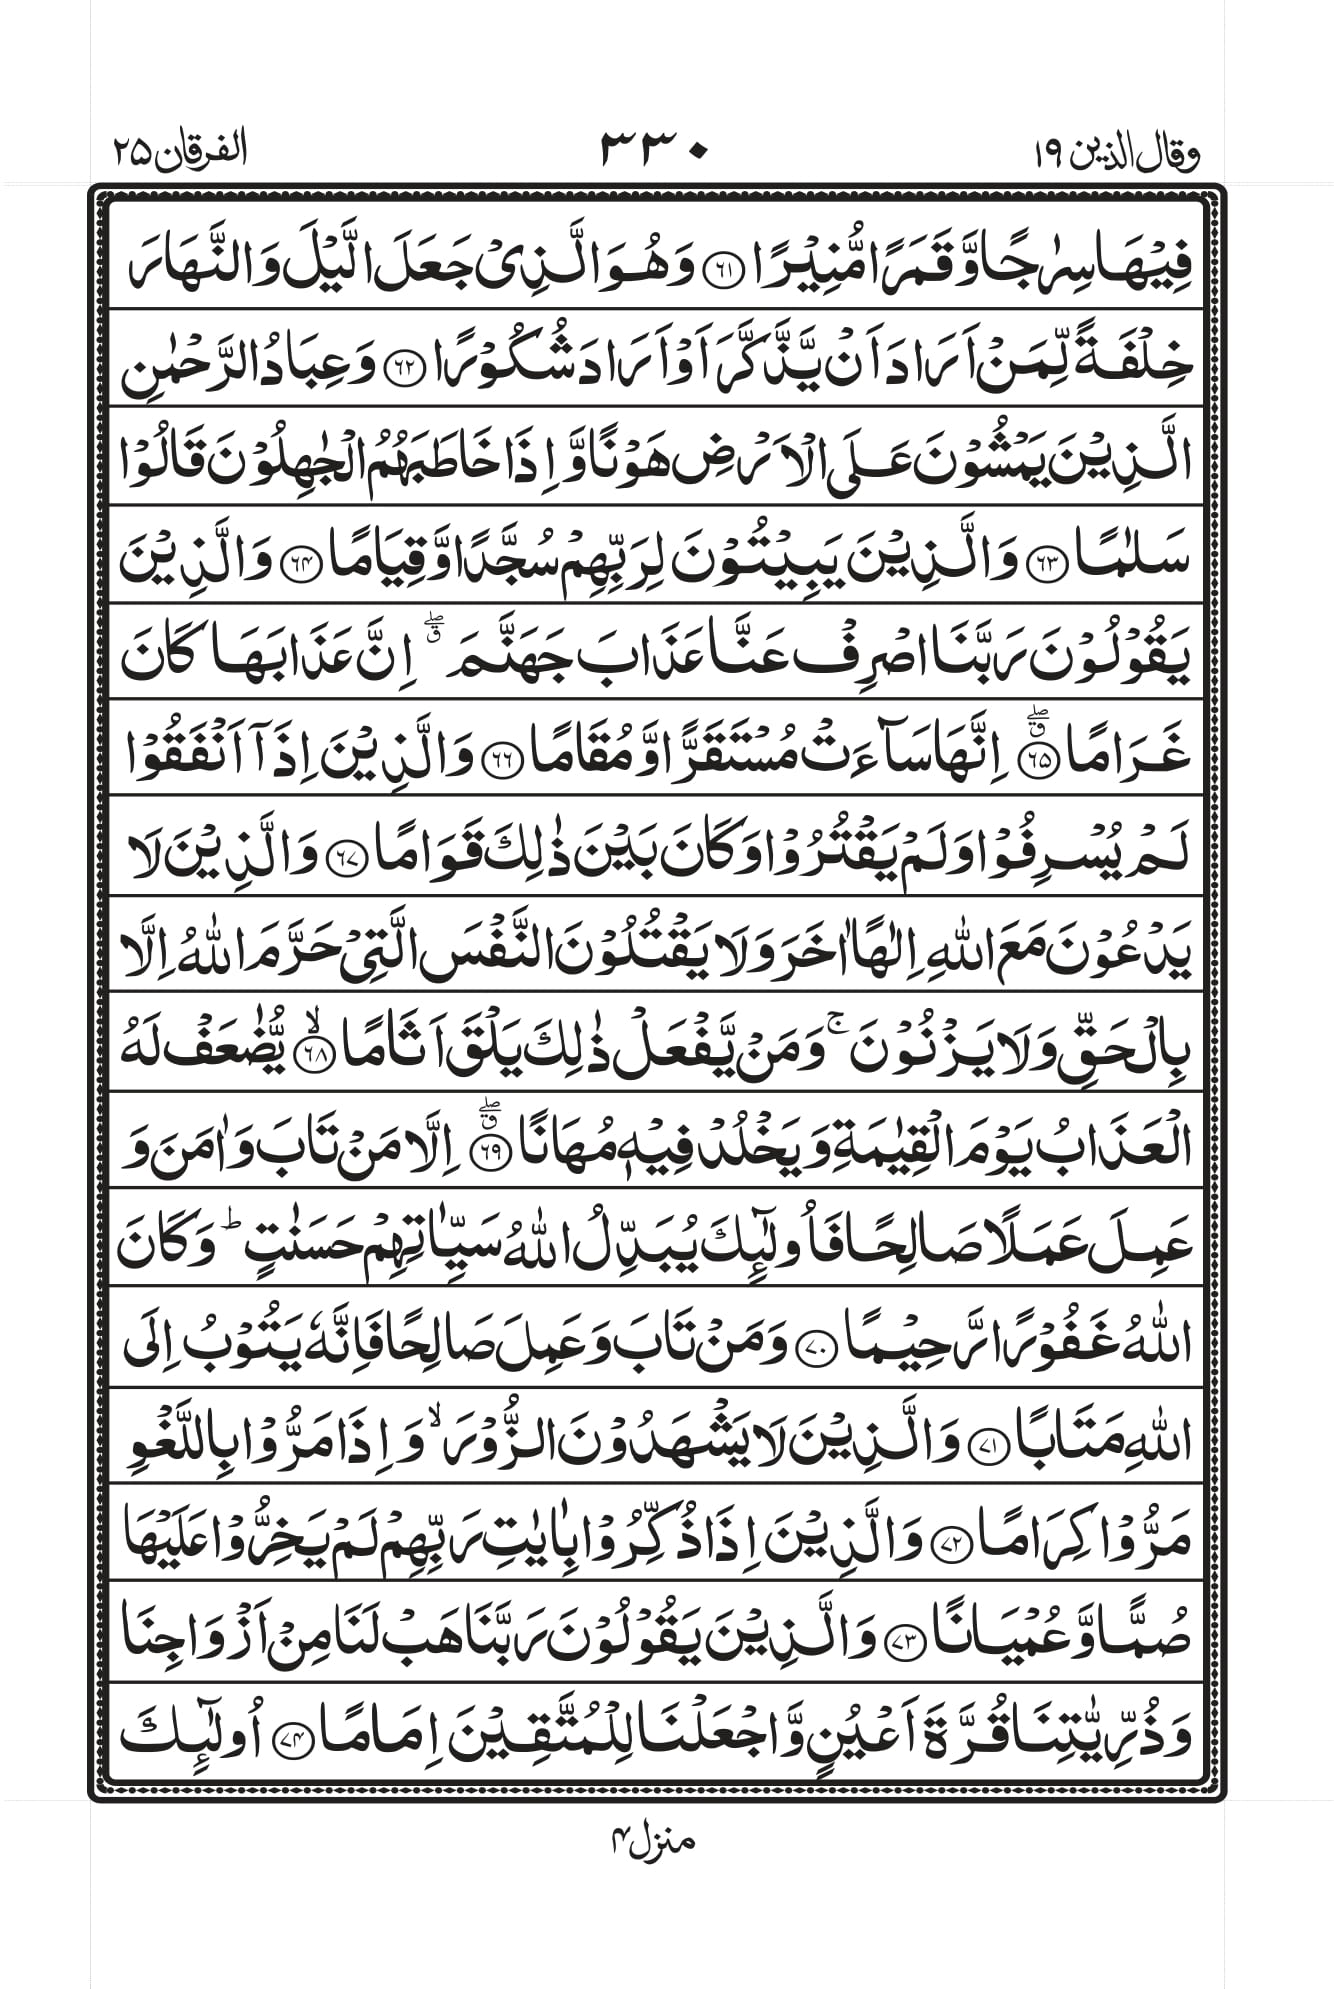 وقال الذین ۱۹
۳۳۰
الفرقان ۲۵
فِیْهَا سِرٰجًا وَّقَمَرًا مُّنِیْرًا ﴿۶۱﴾ وَهُوَ الَّذِیْ جَعَلَ الَّیْلَ وَالنَّهَارَ
خِلْفَةً لِّمَنْ اَرَادَ اَنْ یَّذَّكَّرَ اَوْ اَرَادَ شُكُوْرًا ﴿۶۲﴾ وَعِبَادُ الرَّحْمٰنِ
الَّذِیْنَ یَمْشُوْنَ عَلَی الْاَرْضِ هَوْنًا وَّاِذَا خَاطَبَهُمُ الْجٰهِلُوْنَ قَالُوْا
سَلٰمًا ﴿۶۳﴾ وَالَّذِیْنَ یَبِیْتُوْنَ لِرَبِّهِمْ سُجَّدًا وَّقِیَامًا ﴿۶۴﴾ وَالَّذِیْنَ
یَقُوْلُوْنَ رَبَّنَا اصْرِفْ عَنَّا عَذَابَ جَهَنَّمَ ۖق اِنَّ عَذَابَهَا كَانَ
غَرَامًا ﴿۶۵﴾ ۖق اِنَّهَا سَآءَتْ مُسْتَقَرًّا وَّمُقَامًا ﴿۶۶﴾ وَالَّذِیْنَ اِذَآ اَنْفَقُوْا
لَمْ یُسْرِفُوْا وَلَمْ یَقْتُرُوْا وَكَانَ بَیْنَ ذٰلِكَ قَوَامًا ﴿۶۷﴾ وَالَّذِیْنَ لَا
یَدْعُوْنَ مَعَ اللّٰهِ اِلٰهًا اٰخَرَ وَلَا یَقْتُلُوْنَ النَّفْسَ الَّتِیْ حَرَّمَ اللّٰهُ اِلَّا
بِالْحَقِّ وَلَا یَزْنُوْنَ ۚ وَمَنْ یَّفْعَلْ ذٰلِكَ یَلْقَ اَثَامًا ﴿۶۸﴾ ۙ یُّضٰعَفْ لَهُ
الْعَذَابُ یَوْمَ الْقِیٰمَةِ وَیَخْلُدْ فِیْهٖ مُهَانًا ﴿۶۹﴾ ۖق اِلَّا مَنْ تَابَ وَاٰمَنَ وَ
عَمِلَ عَمَلًا صَالِحًا فَاُولٰٓئِكَ یُبَدِّلُ اللّٰهُ سَیِّاٰتِهِمْ حَسَنٰتٍ ؕ وَكَانَ
اللّٰهُ غَفُوْرًا رَّحِیْمًا ﴿۷۰﴾ وَمَنْ تَابَ وَعَمِلَ صَالِحًا فَاِنَّهٗ یَتُوْبُ اِلَی
اللّٰهِ مَتَابًا ﴿۷۱﴾ وَالَّذِیْنَ لَا یَشْهَدُوْنَ الزُّوْرَ ۙ وَاِذَا مَرُّوْا بِاللَّغْوِ
مَرُّوْا كِرَامًا ﴿۷۲﴾ وَالَّذِیْنَ اِذَا ذُكِّرُوْا بِاٰیٰتِ رَبِّهِمْ لَمْ یَخِرُّوْا عَلَیْهَا
صُمًّا وَّعُمْیَانًا ﴿۷۳﴾ وَالَّذِیْنَ یَقُوْلُوْنَ رَبَّنَا هَبْ لَنَا مِنْ اَزْوَاجِنَا
وَذُرِّیّٰتِنَا قُرَّةَ اَعْیُنٍ وَّاجْعَلْنَا لِلْمُتَّقِیْنَ اِمَامًا ﴿۷۴﴾ اُولٰٓئِكَ
منزل ۴